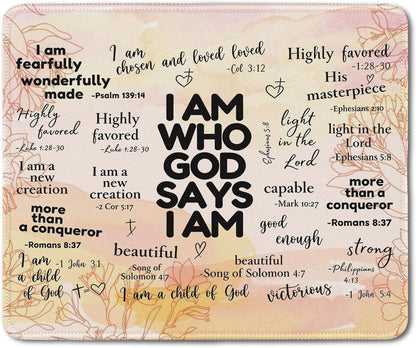 I am
fearfully
wonderfully
made -Psalm 139:14
I am
chosen and loved loved
-Col 3:12
Highly favored
-1:28-30
His
masterpiece
-Ephesians 2:10
Highly
favored
-Luke 1:28-30
Highly
favored
-Luke 1:28-30
I AM
WHO
GOD
SAYS
I AM
light
in the
Lord
Ephesians 5:8
light in the Lord
-Ephesians 5:8
I am a
new
creation
I am a
new
creation
-2 Cor 5:17
capable
-Mark 10:27
more than
a conqueror
-Romans 8:37
more
than
a conqueror
-Romans 8:37
good
enough
strong
-Philippians
4:13
I am
a child
of God
-1 John 3:1
beautiful
-Song of
Solomon 4:7
beautiful
-Song of Solomon 4:7
I am a child of God
victorious -1 John 5:4